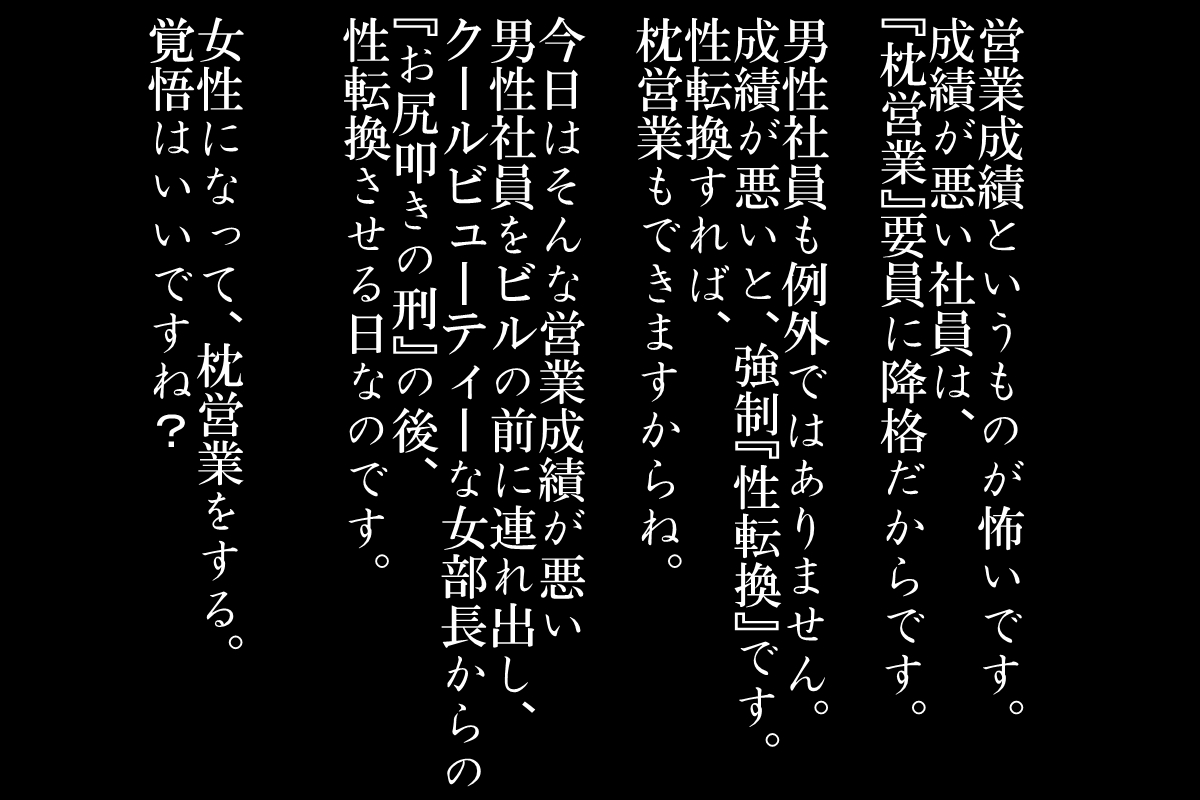 営業成績というものが怖いです。
成績が悪い社員は、
『枕営業』要員に降格だからです。
男性社員も例外ではありません。
成績が悪いと、強制『性転換』です。
性転換すれば、
枕営業もできますからね。
今日はそんな営業成績が悪い
男性社員をビルの前に連れ出し、
クールビューティーな女部長からの
『お尻叩きの刑』の後、
性転換させる日なのです。
女性になって、枕営業をする。
覚悟はいいですね？